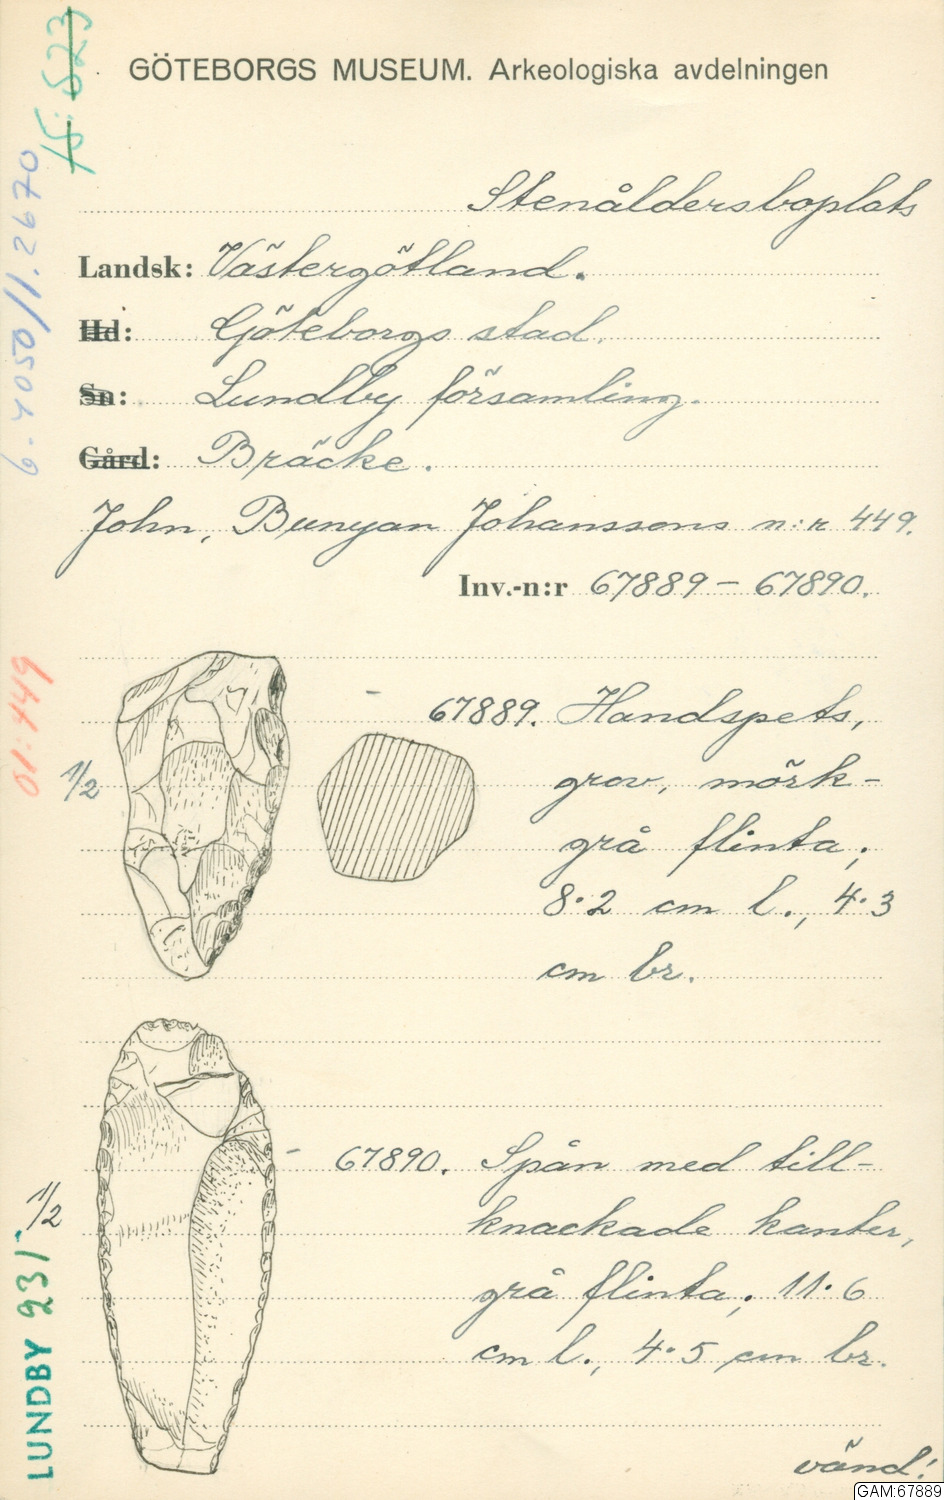 15:523
GÖTEBORGS MUSEUM. Arkeologiska avdelningen
6-4050/1.2670
Stenåldersboplats
Landsk: Västergötland.
Hd: Göteborgs stad.
Sn: Lundby församling.
Gård: Bräcke.
John, Bunyan Johanssons n:r 449.
Inv.-n:r 67889 – 67890.
01:449
1/2
67889. Handspets,
grov, mörk-
grå flinta;
8·2 cm l., 4·3
cm br.
1/2
67890. Spån med till-
knackade kanter,
grå flinta; 11·6
cm l., 4·5 cm br.
LUNDBY 231
vänd!
GAM:67889